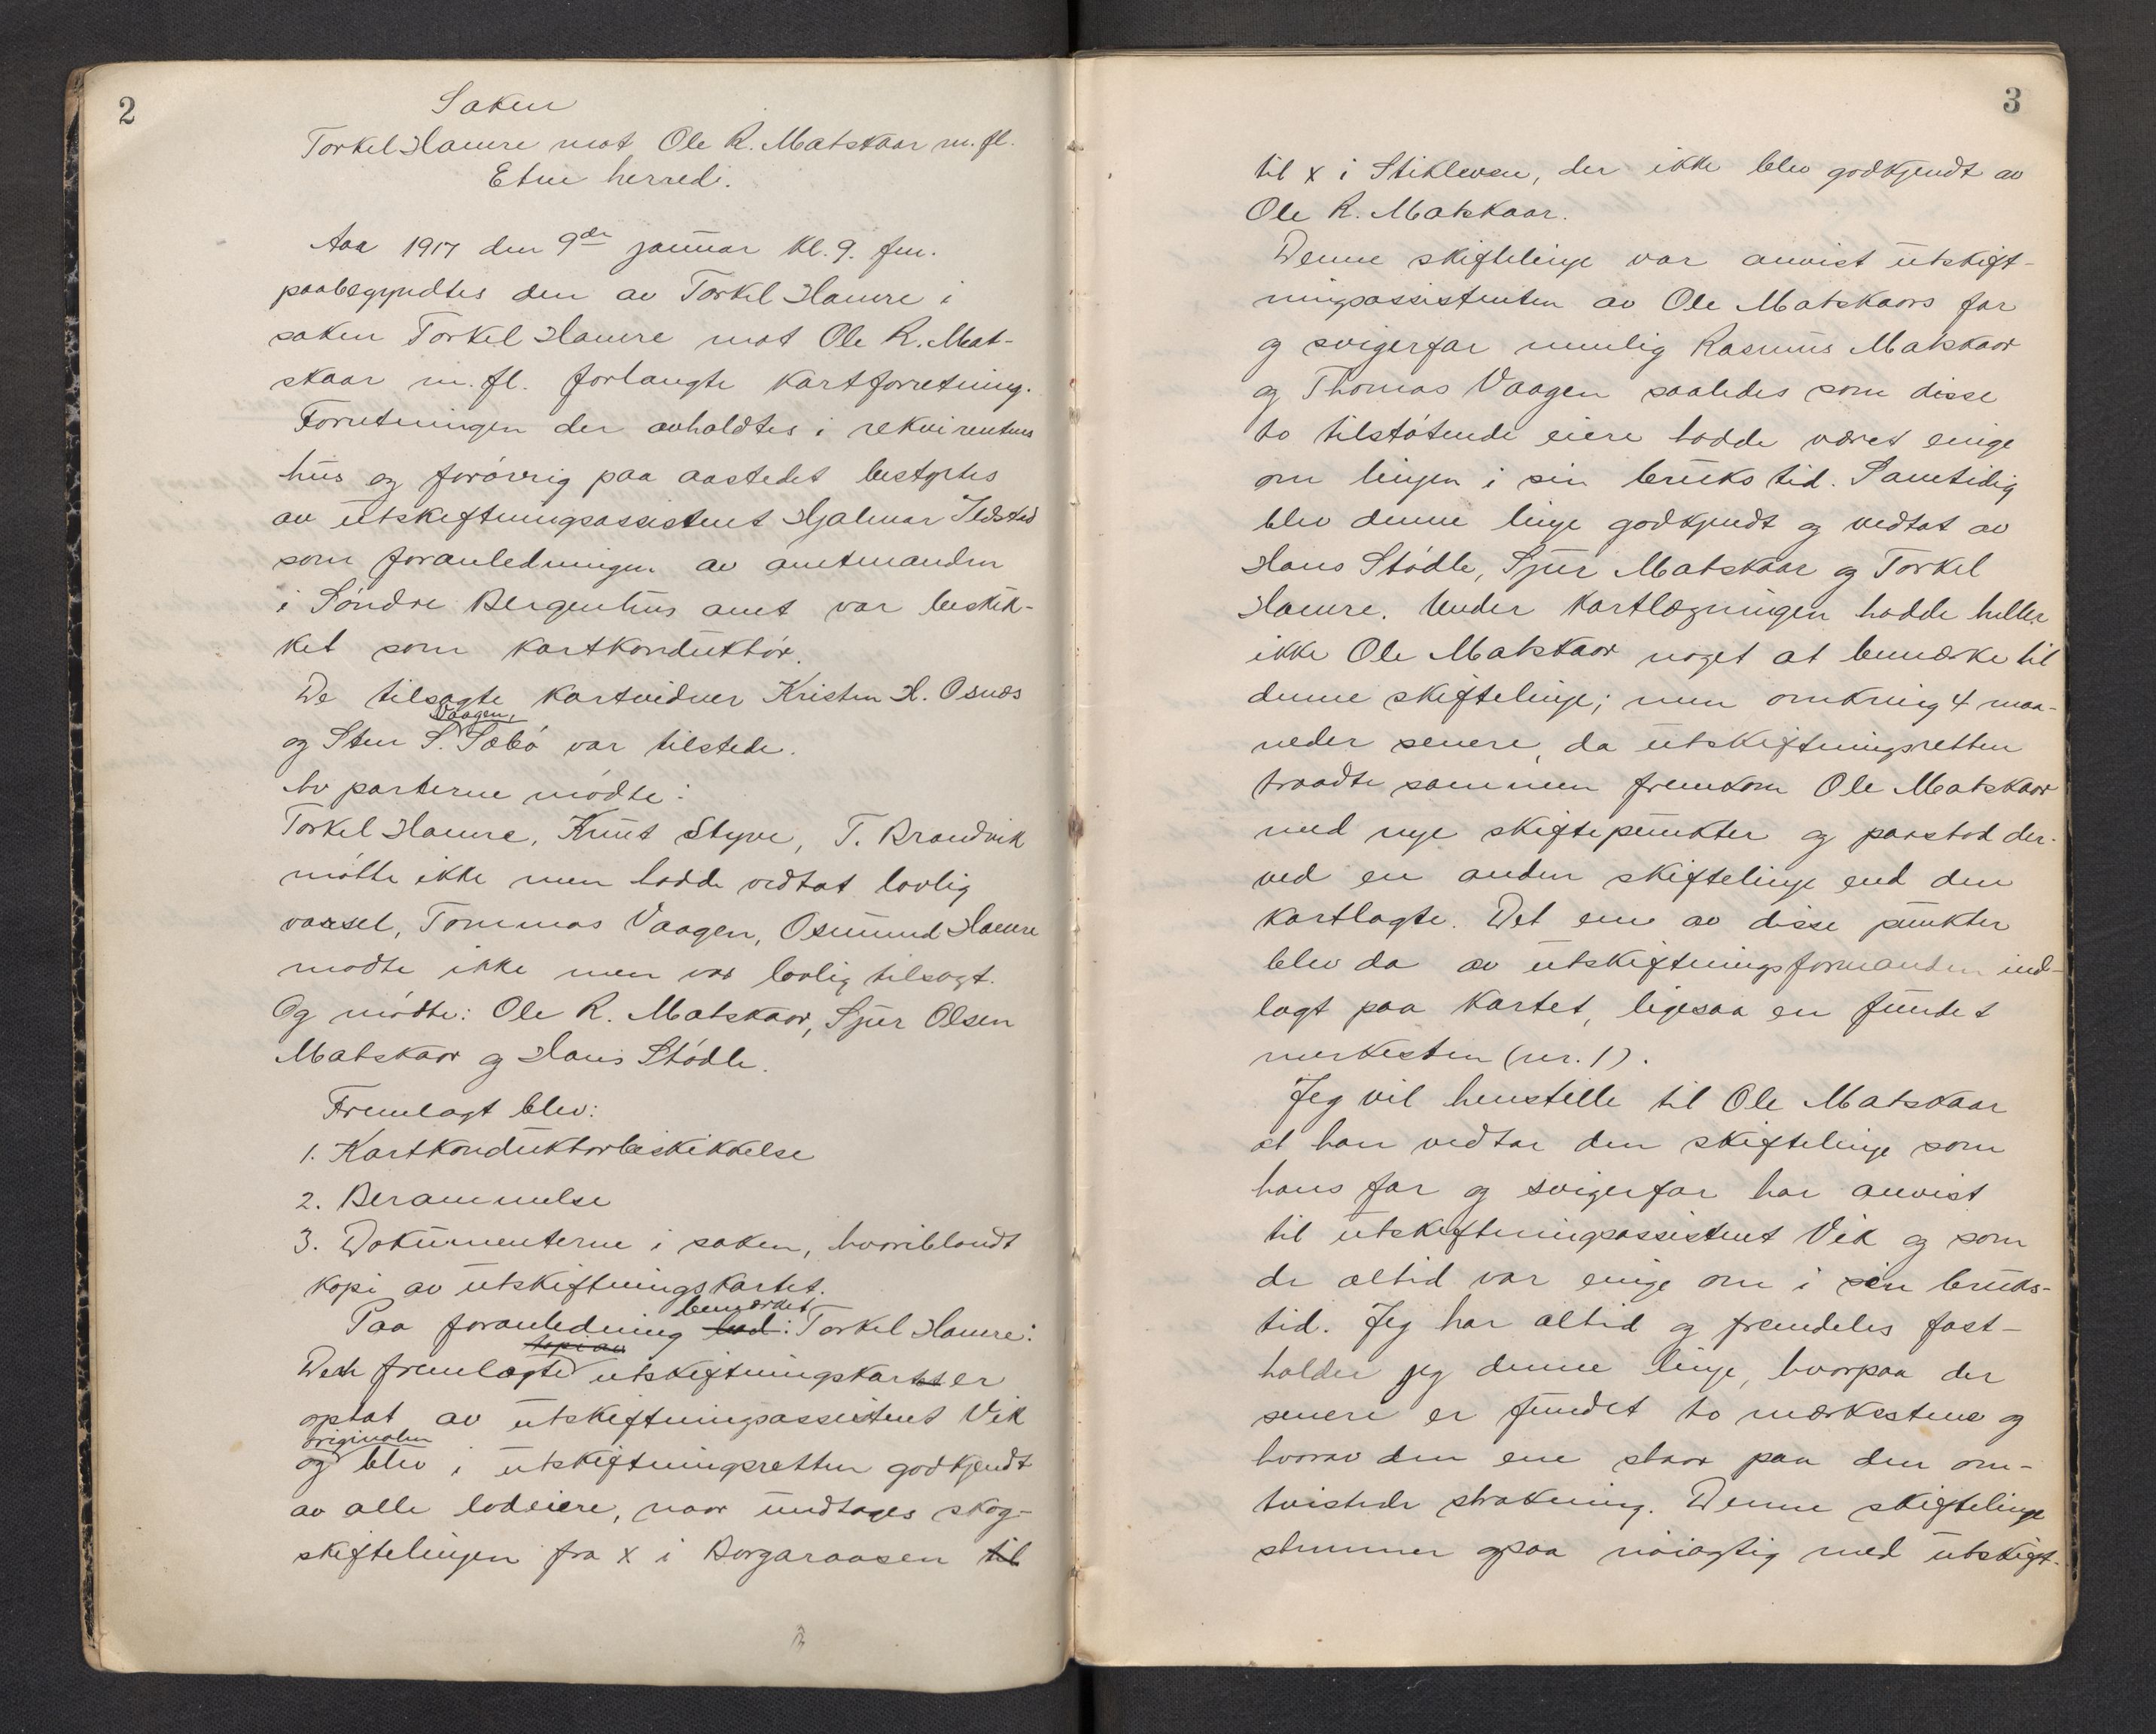 2
Saken
Torkel Hamre mot Ole R. Matskaar m. fl.
Etne herred.
Aar 1917 den 9de januar kl. 9. fm.
paabegyndtes den av Torkel Hamre i
saken Torkel Hamre mot Ole R. Mat-
skaar m. fl. forlangte kartforretning.
Forretningen der avholdtes i rekvirentens
hus og forøvrig paa aastedet bestyrtes
av utskiftningsassistent Hjalmar Ildstad
som foranledningen av amtmanden
i Søndre Bergenhus amt var beskik-
ket som kartkonduktør.
De tilsagte kartvidner Kristen H. Osnes
Vaagen,
og Sten S. Sæbø var tilstede.
Av parterne mødte:
Torkel Hamre, Knut Styve, T. Brandvik
møtte ikke men hadde vedtat lovlig
varsel, Tommas Vaagen, Osmund Hamre
mødte ikke men var lovlig tilsagt.
Og mødte: Ole R. Matskaar, Sjur Olsen
Matskaar og Hans Stødle.
Fremlagt blev:
1. Kartkonduktørbeskikkelse
2. Berammelse
3. Dokumenterne i saken, hvoriblandt
kopi av utskiftningskartet.
bemerket
Paa foranledning lod: Torkel Hamre:
kopi av
Det fremlagte utskiftningskart er
optat av utskiftningsassistent Vik
originalen
og blev i utskiftningsretten godkjendt
av alle lodeiere, naar undtages skog-
skiftelinjen fra x i Borgaraasen til
3
til x i Stiklevsen, der ikke blev godkjendt av
Ole R. Matskaar.
Denne skiftelinje var anvist utskift-
ningsassistenten av Ole Matskaars far
og svigerfar nemlig Rasmus Matskaar
og Thomas Vaagen saaledes som disse
to tilstøtende eiere hadde været enige
om linjen i sin bruks tid. Samtidig
blev denne linje godkjendt og vedtat av
Hans Stødle, Sjur Matskaar og Torkel
Hamre. Under kartlægningen hadde heller
ikke Ole Matskaar noget at bemerke til
denne skiftelinje; men omkring 4 maa-
neder senere, da utskiftningsretten
traadte sammen fremkom Ole Matskaar
med nye skiftepunkter og paastod der-
ved en anden skiftelinje end den
kartlagte. Det ene av disse punkter
blev da av utskiftningsformanden ind-
lagt paa kartet, ligesaa en fundet
merkesten (nr. 1).
Jeg vil henstille til Ole Matskaar
at han vedtar den skiftelinje som
hans far og svigerfar har anvist
til utskiftningsassistent Vik og som
de altid var enige om i sin bruks-
tid. Jeg har altid og fremdeles fast-
holder jeg denne linje, hvorpaa der
senere er fundet to merkestene og
hvorav den ene staar paa den om-
tvistede strækning. Denne skiftelinje
stemmer ogsaa nøiagtig med utskift-